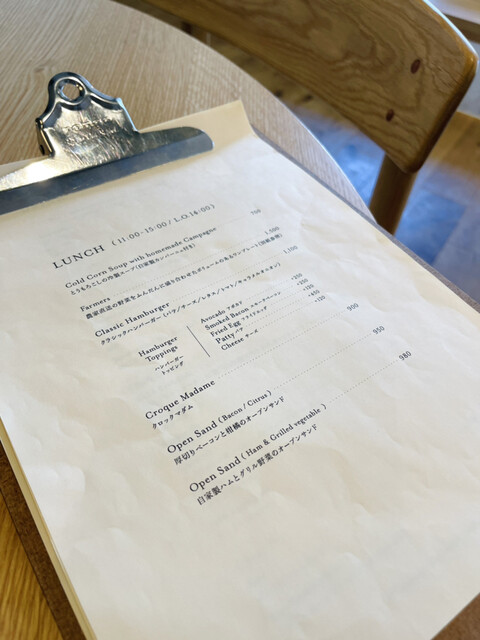 LUNCH (11:00-15:00 / L.O.14:00)
Cold Corn Soup with homemade Campagne 700
とうもろこしの冷製スープ(自家製カンパーニュ付き)
Farmers 1,000
農家直送の野菜をふんだんに織り合わせたボリュームのあるサンドイッチ
Classic Hamburger 1,100
クラシックハンバーガー(パテ/チーズ/レタス/トマト/キャラメルオニオン)
Hamburger Toppings
ハンバーガー
トッピング
Avocado アボカド +200
Smoked Bacon スモークベーコン
Fried Egg フライドエッグ
Patty パテ +450
Cheese チーズ +120
Croque Madame 900
クロックマダム
Open Sand (Bacon / Citrus) 950
厚切りベーコンと柑橘のオープンサンド
Open Sand ( Ham & Grilled vegetable ) 980
自家製ハムとグリル野菜のオープンサンド